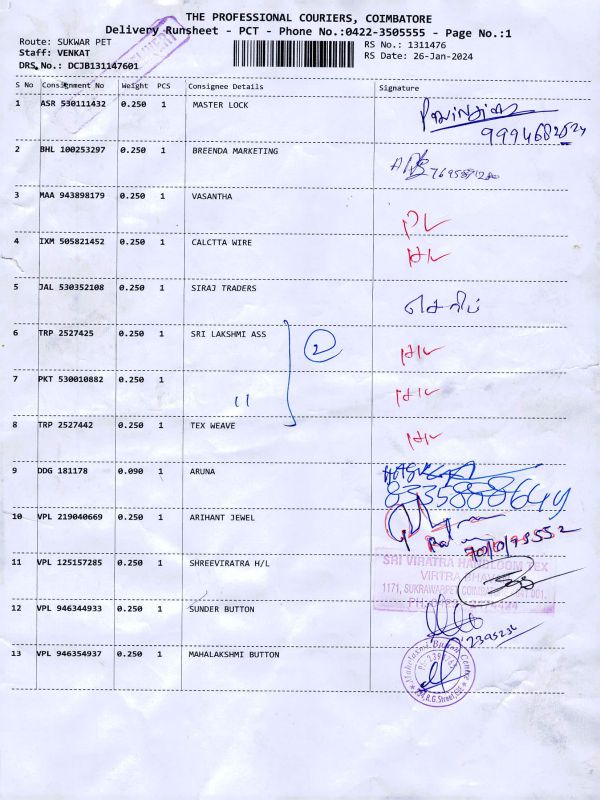 THE PROFESSIONAL COURIERS, COIMBATORE
Delivery Runsheet - PCT - Phone No.:0422-3505555 - Page No.:1
Route: SUKWAR PET
Staff: VENKAT
DRS No.: DCJB131147601
RS No.: 1311476
RS Date: 26-Jan-2024
S No Consignment No Weight PCS Consignee Details Signature
1 ASR 530111432 0.250 1 MASTER LOCK
2 BHL 100253297 0.250 1 BREENDA MARKETING
3 MAA 943898179 0.250 1 VASANTHA
4 IXM 505821452 0.250 1 CALCTTA WIRE
5 JAL 530352108 0.250 1 SIRAJ TRADERS
6 TRP 2527425 0.250 1 SRI LAKSHMI ASS 2
7 PKT 530010882 0.250 1 "
8 TRP 2527442 0.250 1 TEX WEAVE
9 DDG 181178 0.090 1 ARUNA
10 VPL 219040669 0.250 1 ARIHANT JEWEL
11 VPL 125157285 0.250 1 SHREEVIRATRA H/L
SRI VIRATRA HANDLOOM TEX
12 VPL 946344933 0.250 1 SUNDER BUTTON
13 VPL 946354937 0.250 1 MAHALAKSHMI BUTTON